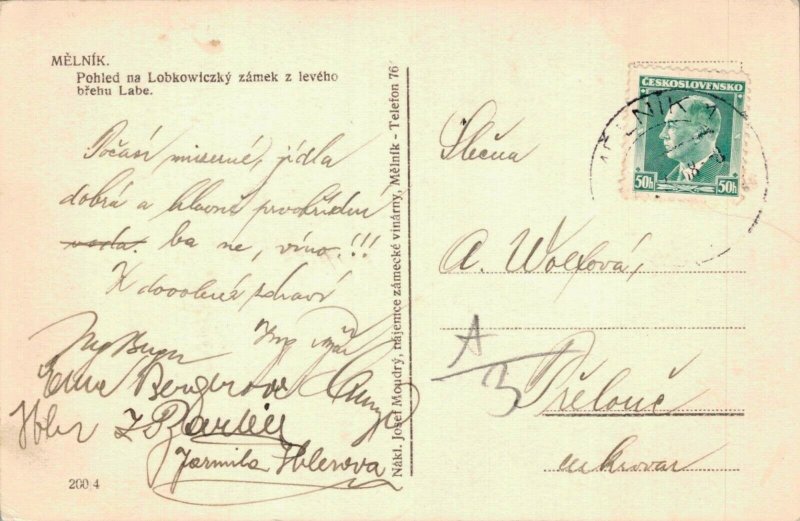 MĚLNÍK.
Pohled na Lobkowiczký zámek z levého
břehu Labe.
Počasí miserné, jídla
dobrá a hlavně prvotřídní
voda. ba ne, víno!!!
Z dovolené zdraví
Ing
Erna Bergerová
Ibler
Jarmila Iblerova
200 4
Nákl. Josef Moudrý, nájemce zámecké vinárny, Mělník - Telefon 76
ČESKOSLOVENSKO
50h 50h
MĚLNÍK 1
Slečna
A. Wolfová,
A/3
Přelouč
cukrovar